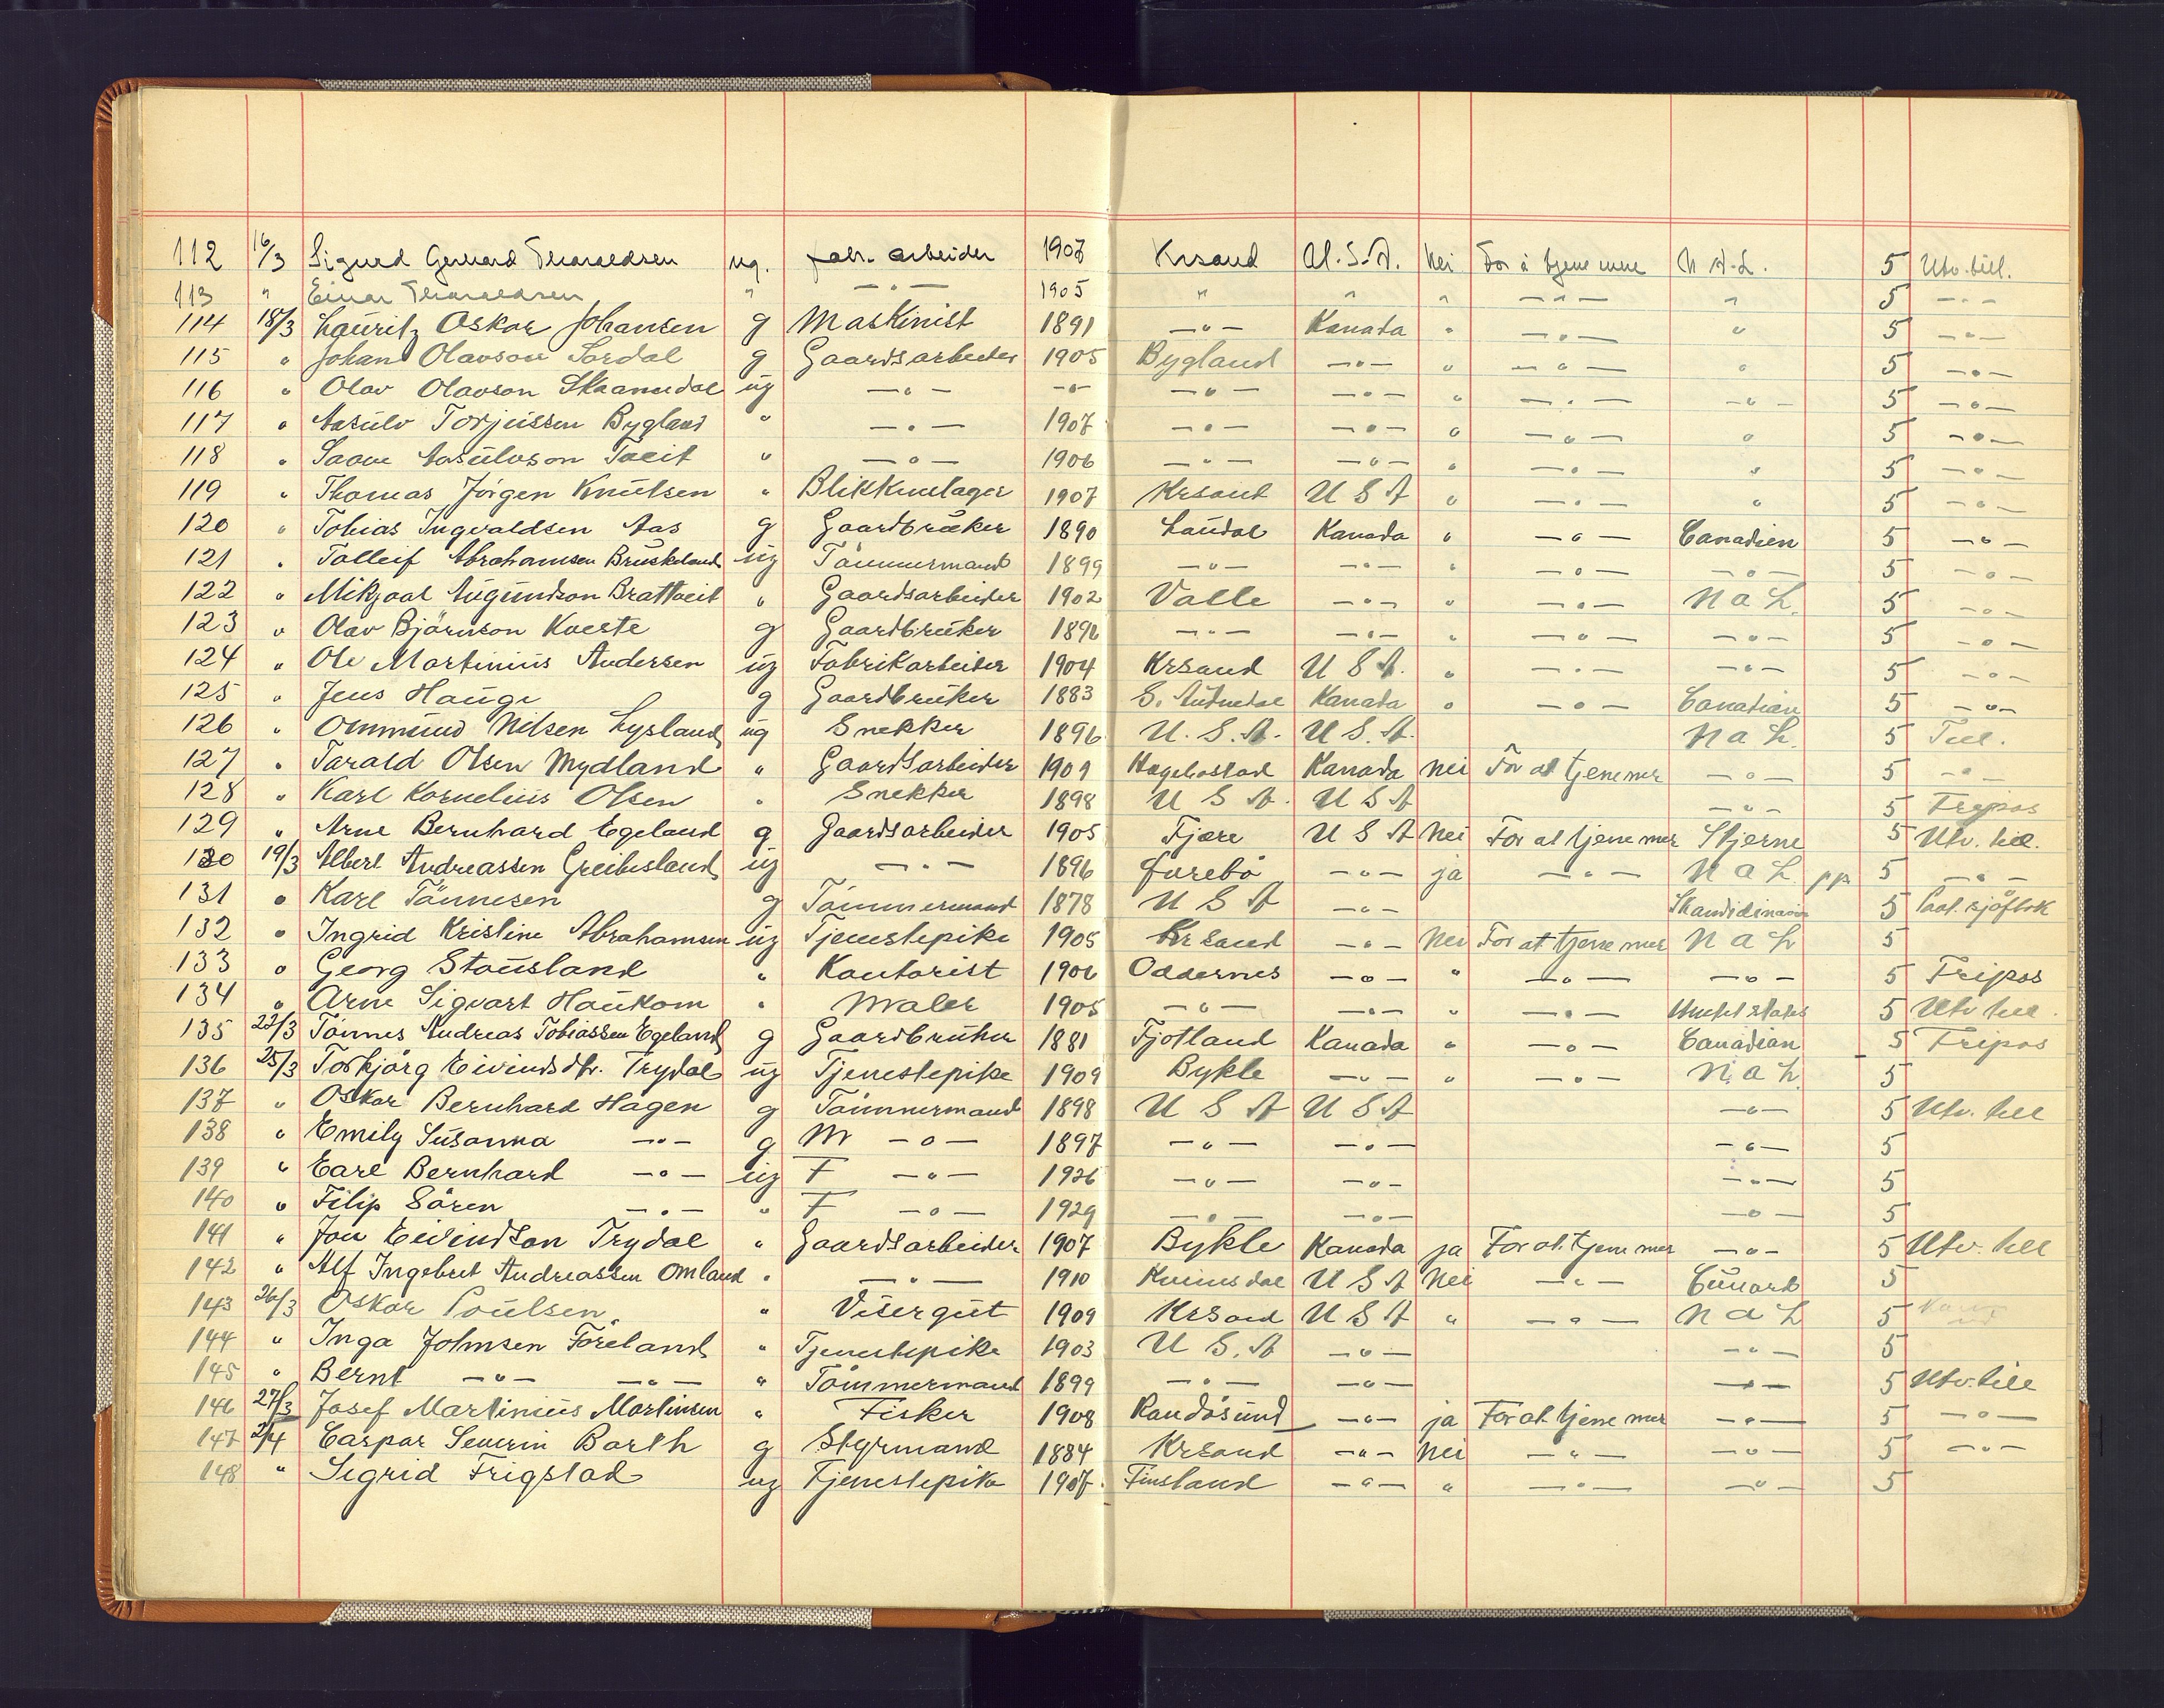 112 16/3 Sigurd Gerhard Tharaldsen ug. fabr. arbeider 1907 Krsand U.S.A. Nei For å tjene mere N.A.L. 5 Utv. till.
113 " Einar Tharaldsen " —"— 1905 " " " —"— " 5 —"—
114 18/3 Lauritz Oskar Johansen g Maskinist 1891 —"— Kanada " —"— " 5 —"—
115 " Johan Olavson Sordal g Gaardsarbeider 1905 Bygland —"— " —"— " 5 —"—
116 " Olav Olavson Skaamedal ug —"— —"— —"— —"— " —"— —"— 5 —"—
117 " Aasulv Torjussen Bygland " —"— 1907 —"— —"— " —"— " 5 —"—
118 " Aasulvson Tveit " —"— 1906 —"— —"— " —"— " 5 —"—
119 " Thomas Jörgen Knutsen " Blikkenslager 1907 Krsand U S A " —"— " 5 —"—
120 " Tobias Ingvaldsen Aas g Gaardbruker 1890 Laudal Kanada " —"— Canadien 5 —"—
121 " Tolleif Abrahamsen Bruskeland ug Tömmermand 1899 —"— —"— " —"— —"— 5 —"—
122 " Mikjaal Augundson Brattveit " Gaardsarbeider 1902 Valle —"— " —"— N a L. 5 —"—
123 " Olav Björnson Kveste g Gaardbruker 1892 —"— —"— " —"— —"— 5 —"—
124 " Ole Martinius Andersen ug Fabrikarbeider 1904 Krsand U S A. " —"— —"— 5 —"—
125 " Jens Hauge g Gaardbruker 1883 S. Audnedal Kanada " —"— Canadian 5 —"—
126 " Ommund Nilsen Lysland ug Snekker 1896 U. S. A. U S. A. N a L. 5 Till.
127 " Tarald Olsen Mydland " Gaardsarbeider 1901 Hægebostad Kanada Nei For at tjene mer —"— 5 —"—
128 " Karl Kornelius Olsen " Snekker 1898 U S A. U S A —"— 5 Fripas
129 " Arne Bernhard Egeland g Gaardsarbeider 1905 Fjære U S A Nei For at tjene mer Stjerne 5 Utv. till.
130 19/3 Albert Andreassen Greibesland ug —"— 1896 Övrebö —"— ja —"— N a L. pp 5 —"—
131 " Karl Tönnesen g Tömmermand 1878 U S A —"— Skandidinavien 5 sjöfbok
132 " Ingrid Kristine Abrahamsen ug Tjenestepike 1905 Krsand —"— Nei For at tjene mer N a L 5
133 " Georg Stausland " Kontorist 1906 Oddernes —"— " —"— —"— 5 Fripas
134 " Arne Sigvart Haukom " Maler 1905 —"— —"— " —"— United states 5 Utv till.
135 22/3 Tönnes Andreas Tobiassen Egeland g Gaardbruker 1881 Fjotland Kanada " —"— Canadian 5 Fripas
136 25/3 Torbjörg Eivindsdtr. Trydal ug Tjenestepike 1909 Bykle —"— " —"— N. a L. 5
137 " Oskar Bernhard Hagen g Tömmermand 1898 U S A U S A —"— 5 Utv. till
138 " Emily Susanna —"— g M —"— 1897 —"— —"— —"— 5
139 " Earl Bernhard —"— ug F —"— 1926 —"— —"— —"— 5
140 " Filip Sören —"— " F —"— 1929 —"— —"— —"— 5
141 " Jon Eivindson Trydal " Gaardsarbeider 1907 Bykle Kanada ja For at tjene mer —"— 5 Utv. till
142 " Alf Ingebret Andreassen Omland " —"— 1910 Kvinesdal U S A Nei —"— Cunard 5
143 26/3 Oskar Poulsen " Visergut 1909 Krsand U S A " —"— N a L 5
144 " Inga Johnsen Föreland " Tjenestepike 1903 U S. A —"— —"— 5
145 " Bernt —"— —"— " Tömmermand 1899 —"— —"— —"— 5 Utv. till
146 27/3 Josef Martinius Martinsen " Fisker 1908 Randösund —"— ja For at tjene mer —"— 5 —"—
147 2/4 Caspar Severin Barth g Styrmand 1884 Krsand —"— Nei —"— —"— 5 —"—
148 " Sigrid Frigstad ug Tjenestepike 1907. Finsland —"— " —"— —"— 5